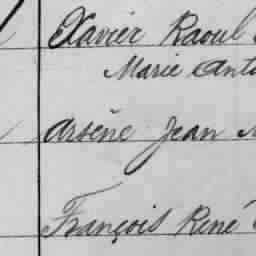 Xavier Raoul
Marie Anto
Arsène Jean
François René